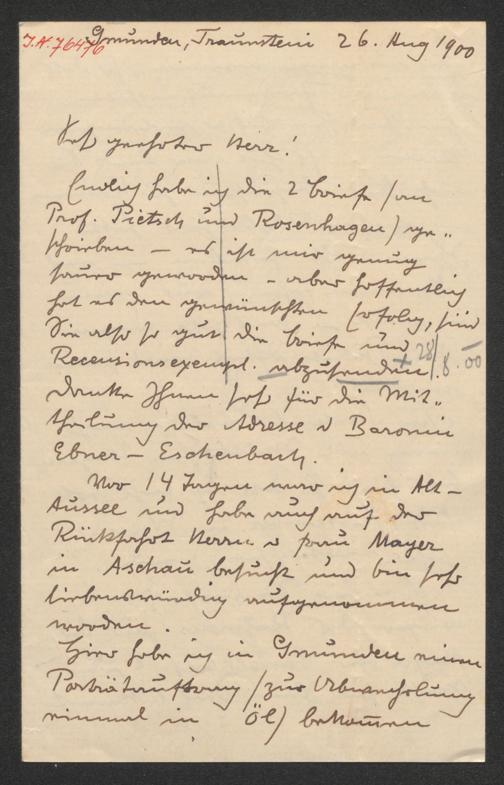 J.N. 76476
Gmunden, Traunstein 26. Aug 1900
Sehr geehrter Herr!
Endlich habe ich die 2 Briefe (an
Prof. Pietsch und Rosenhagen) ge-
schrieben – es ist mir genug
sauer geworden – aber hoffentlich
hat es den gewünschten Erfolg, sind
Sie also so gut die Briefe und
+ 28/8. 00
Recensionsexempl. abzusenden.
danke Ihnen sehr für die Mit-
theilung der Adresse d Baronin
Ebner – Eschenbach.
Vor 14 Tagen war ich in Alt-
Aussee und habe auch auf der
Rückfahrt Herrn u Frau Mayer
in Aschau besucht und bin sehr
liebenswürdig aufgenommen
worden.
Hier habe ich in Gmunden einen
Porträtauftrag (zur Abwechslung
einmal in Öl) bekommen